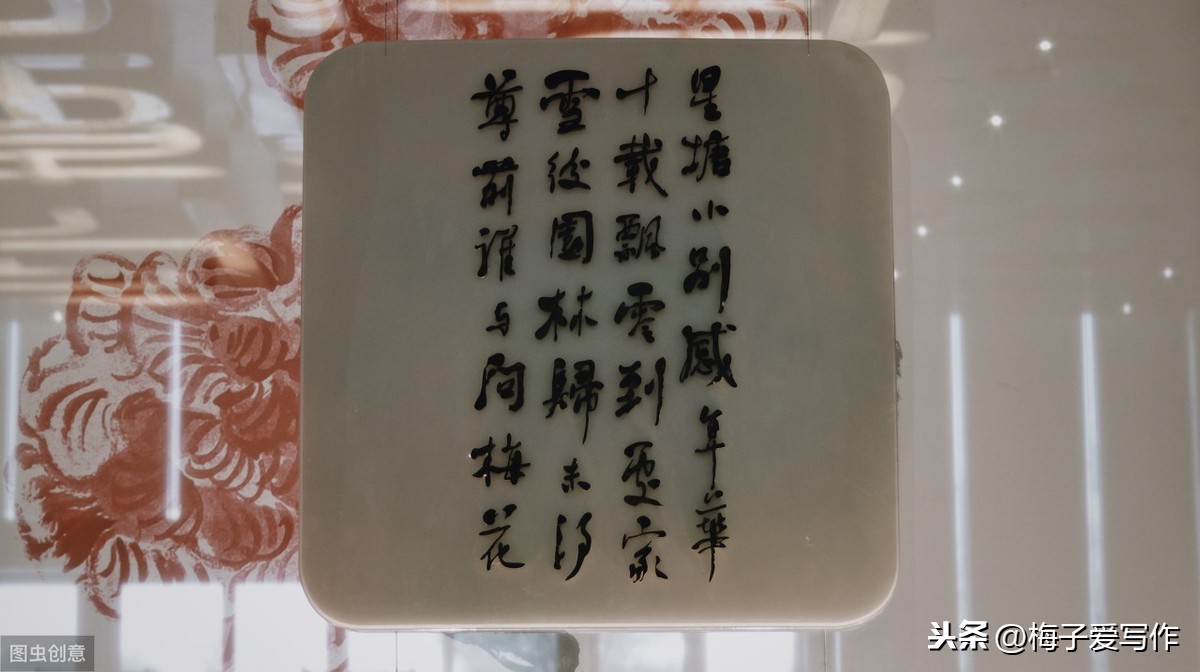 星塘小別感年華
十載飄零到處家
雪後園林歸未得
尊前誰与問梅花
图虫创意
头条 @梅子爱写作